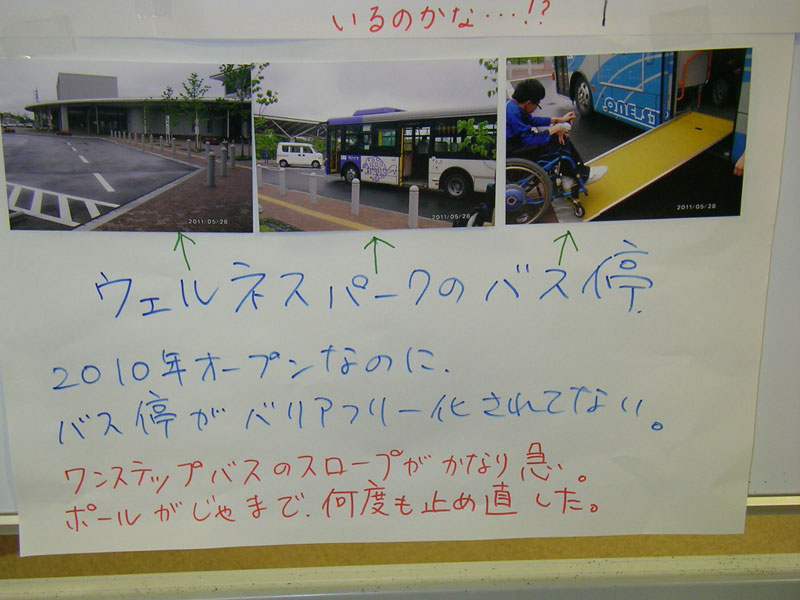 いるのかな…!?
2011/05/28
2011/05/28
ONE ST
2011/05/28
ウェルネスパークのバス停
2010年オープンなのに、
バス停がバリアフリー化されてない。
ワンステップバスのスロープがかなり急。
ポールがじゃまで、何度も止め直した。